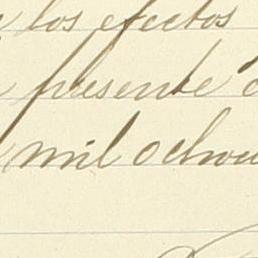 los efectos
presente
mil ochoci